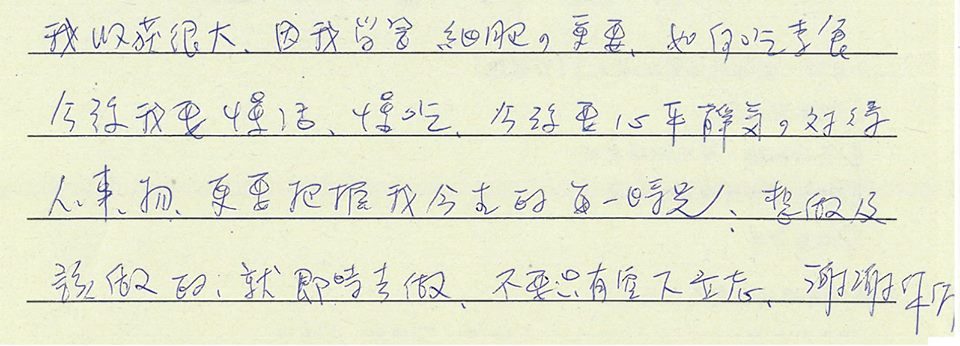 我收获很大、因我学習細胞。更要、如何吃素食
今後我要懂活、懂吃、今後要心平静気。对待
人、事、物、更要把握我今生的每一時見、想做及
該做的、就即時去做、不要只有空下立志、謝謝